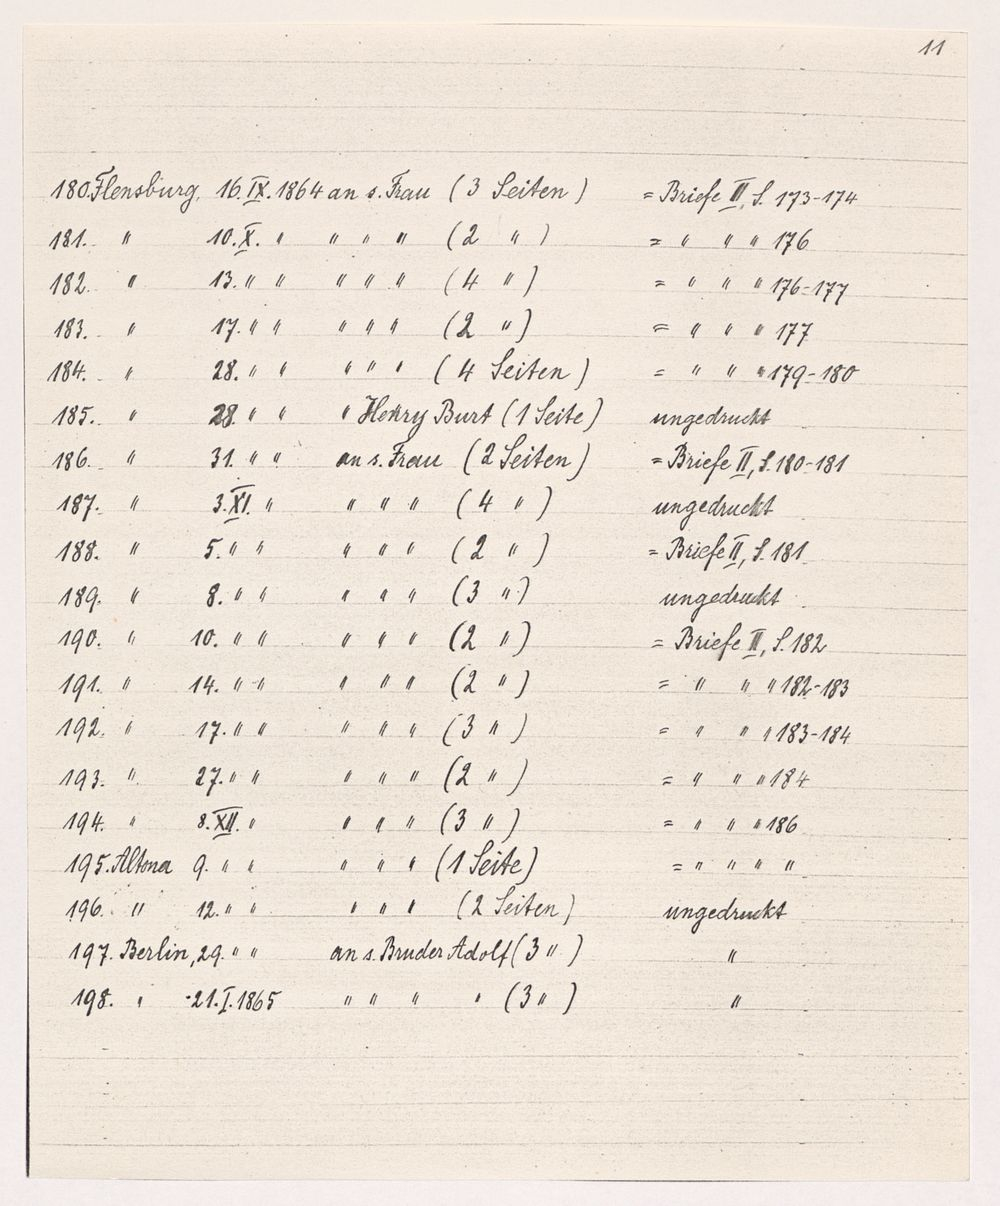 11
180. Flensburg, 16.IX.1864 an s. Frau (3 Seiten) = Briefe II, S. 173-174
181. " 10.X. " " " " (2 ") = " " " 176
182. " 13. " " " " " (4 ") = " " " 176-177
183. " 17. " " " " " (2 ") = " " " 177
184. " 28. " " " " " (4 Seiten) = " " " 179-180
185. " 28. " " " Henry Burt (1 Seite) ungedruckt
186. " 31. " " an s. Frau (2 Seiten) = Briefe II, S. 180-181
187. " 3.XI. " " " " (4 ") ungedruckt
188. " 5. " " " " " (2 ") = Briefe II, S. 181
189. " 8. " " " " " (3 ") ungedruckt
190. " 10. " " " " " (2 ") = Briefe II, S. 182
191. " 14. " " " " " (2 ") = " " " 182-183
192. " 17. " " " " " (3 ") = " " " 183-184
193. " 27. " " " " " (2 ") = " " " 184
194. " 8.XII. " " " " (3 ") = " " " 186
195. Altona 9. " " " " " (1 Seite) = " " " "
196. " 12. " " " " " (2 Seiten) ungedruckt
197. Berlin, 29. " " an s. Bruder Adolf (3 ") "
198. " 21.I.1865 " " " " (3 ") "